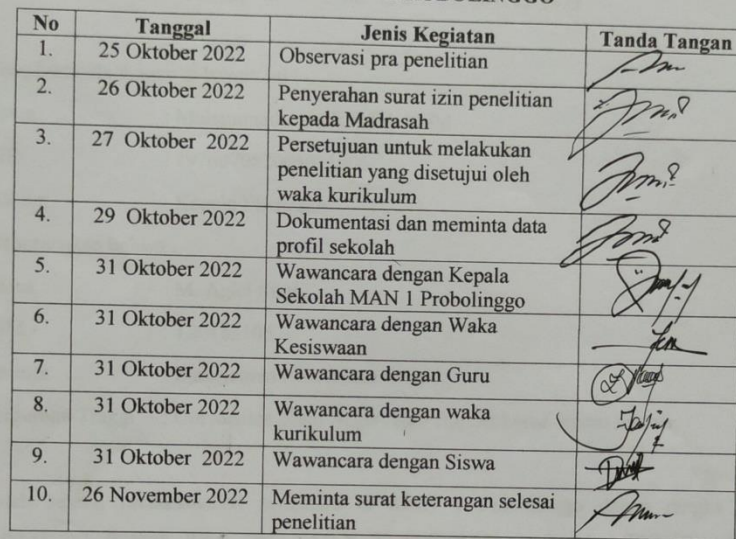 No Tanggal Jenis Kegiatan Tanda Tangan
1. 25 Oktober 2022 Observasi pra penelitian
2. 26 Oktober 2022 Penyerahan surat izin penelitian
kepada Madrasah
3. 27 Oktober 2022 Persetujuan untuk melakukan
penelitian yang disetujui oleh
waka kurikulum
4. 29 Oktober 2022 Dokumentasi dan meminta data
profil sekolah
5. 31 Oktober 2022 Wawancara dengan Kepala
Sekolah MAN 1 Probolinggo
6. 31 Oktober 2022 Wawancara dengan Waka
Kesiswaan
7. 31 Oktober 2022 Wawancara dengan Guru
8. 31 Oktober 2022 Wawancara dengan waka
kurikulum
9. 31 Oktober 2022 Wawancara dengan Siswa
10. 26 November 2022 Meminta surat keterangan selesai
penelitian